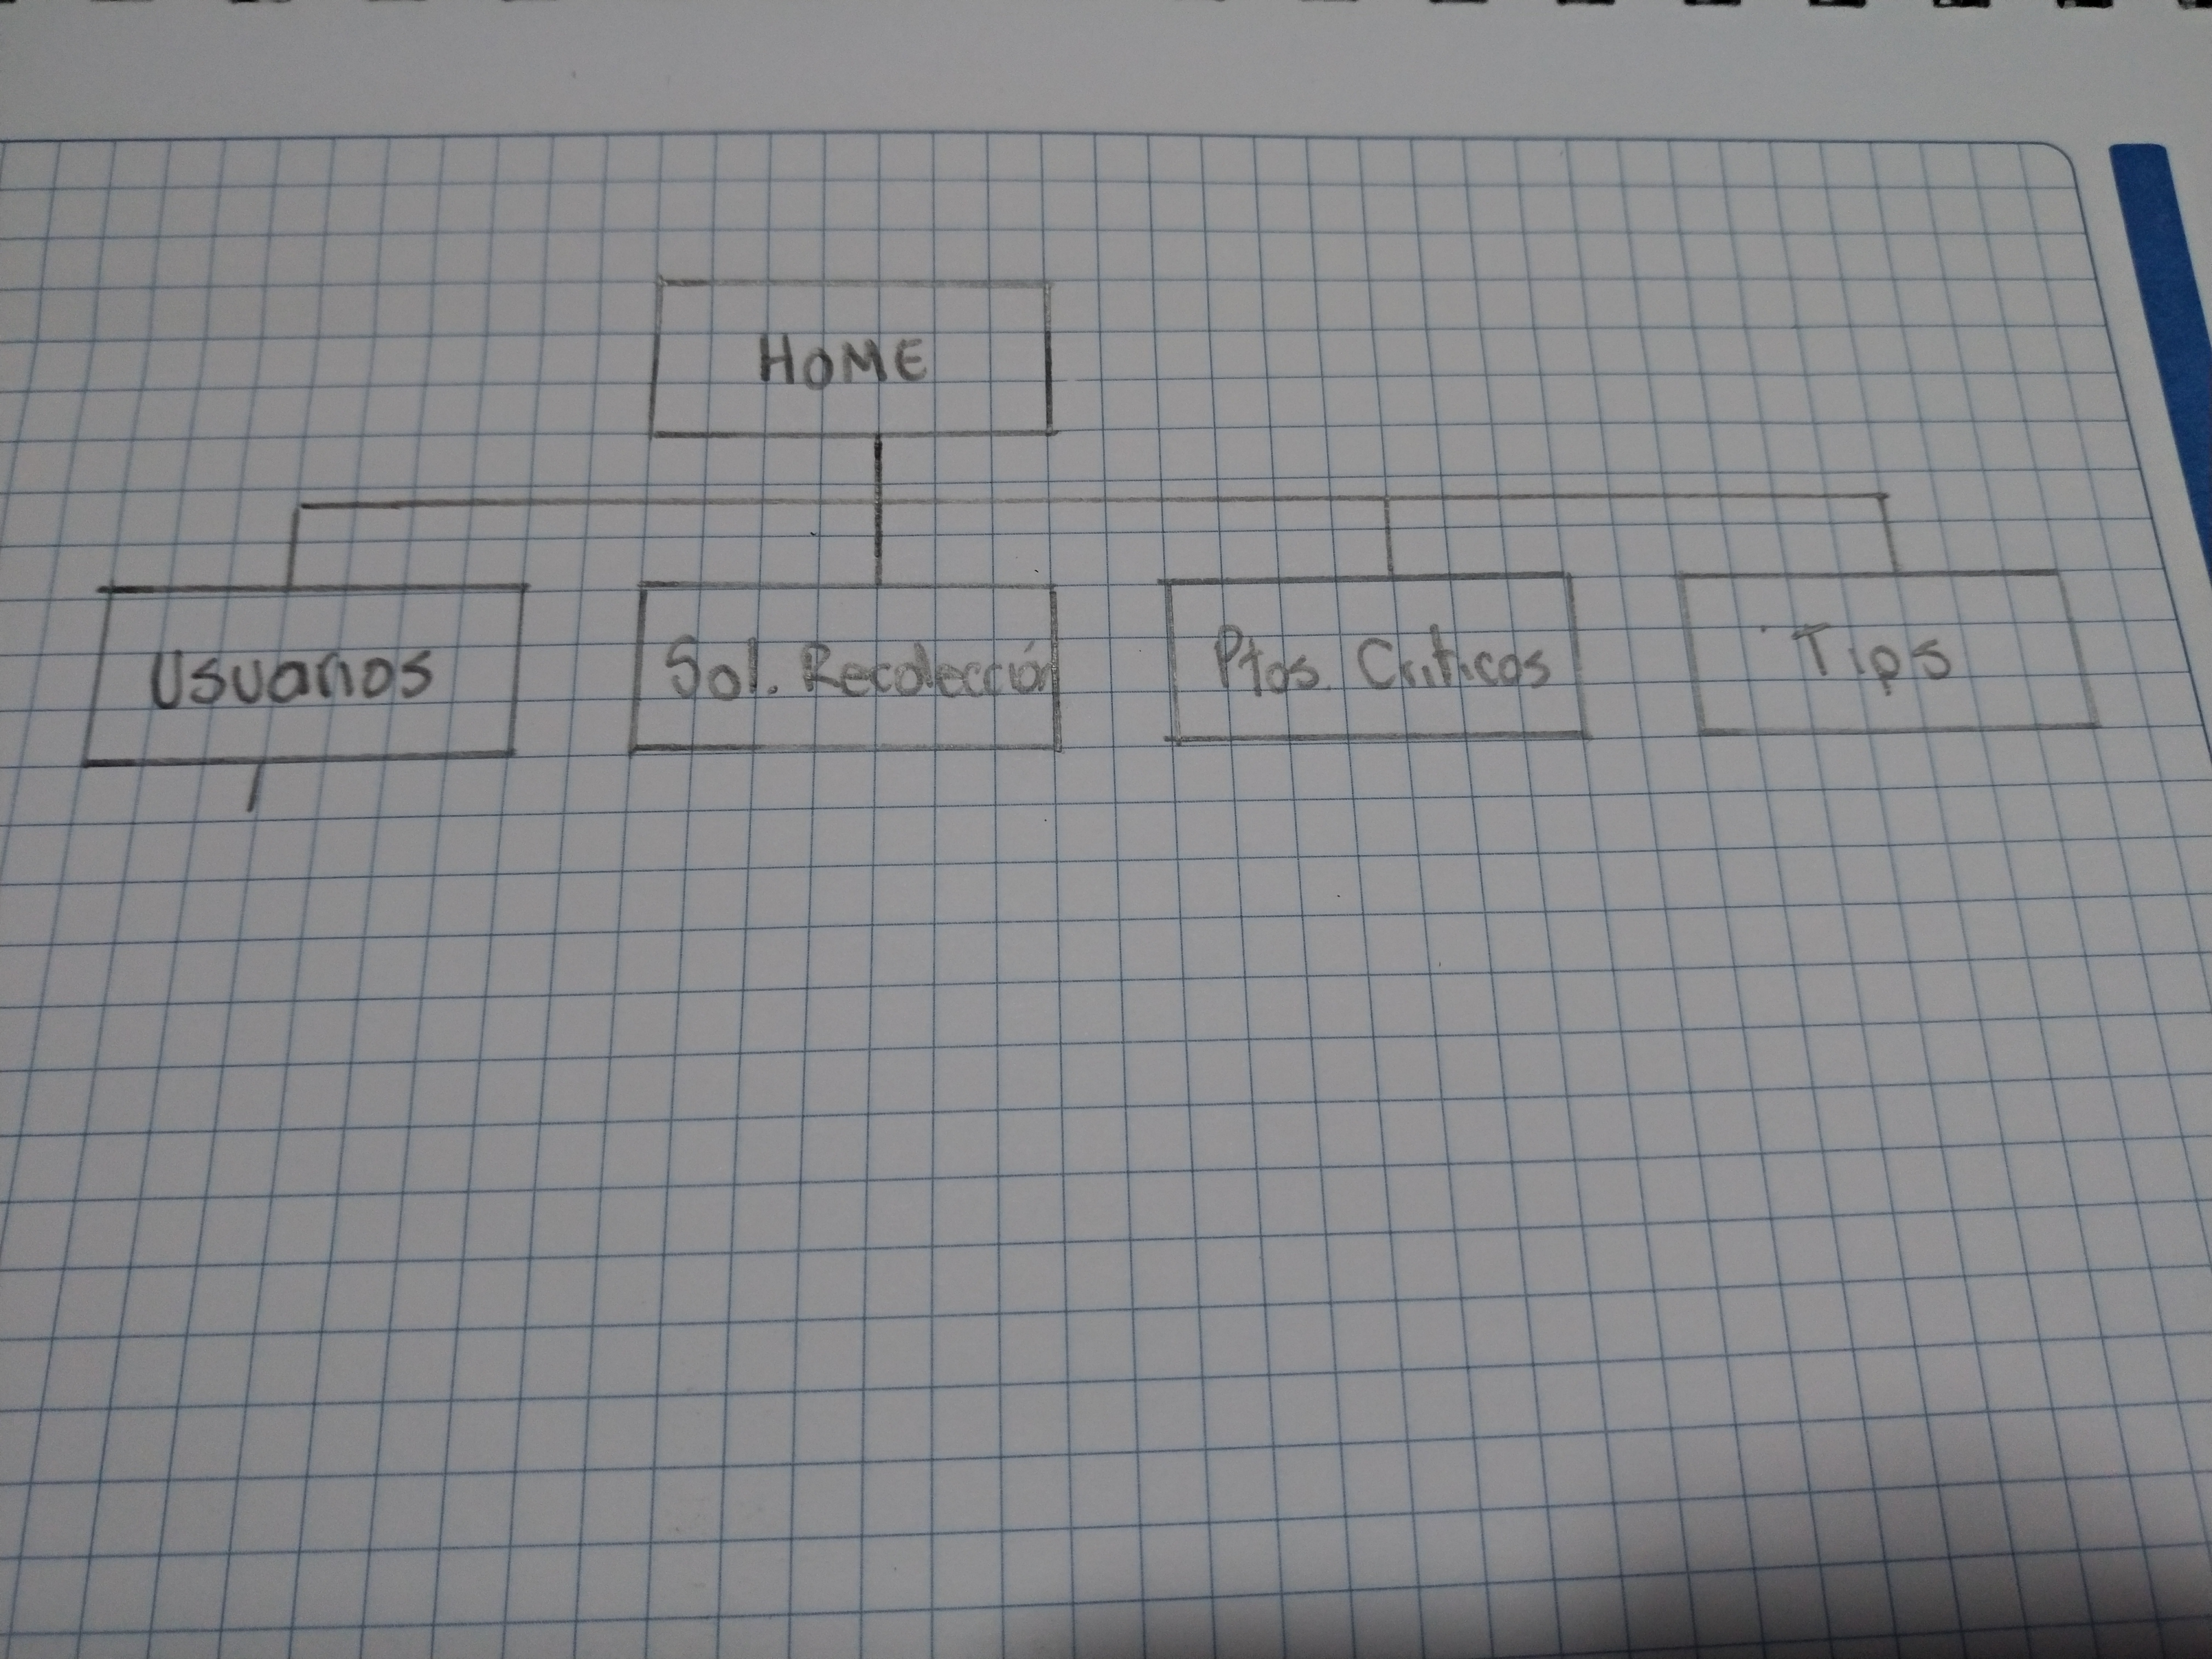 HOME
Usuarios
Sol. Recolección
Ptos. Criticos
Tips